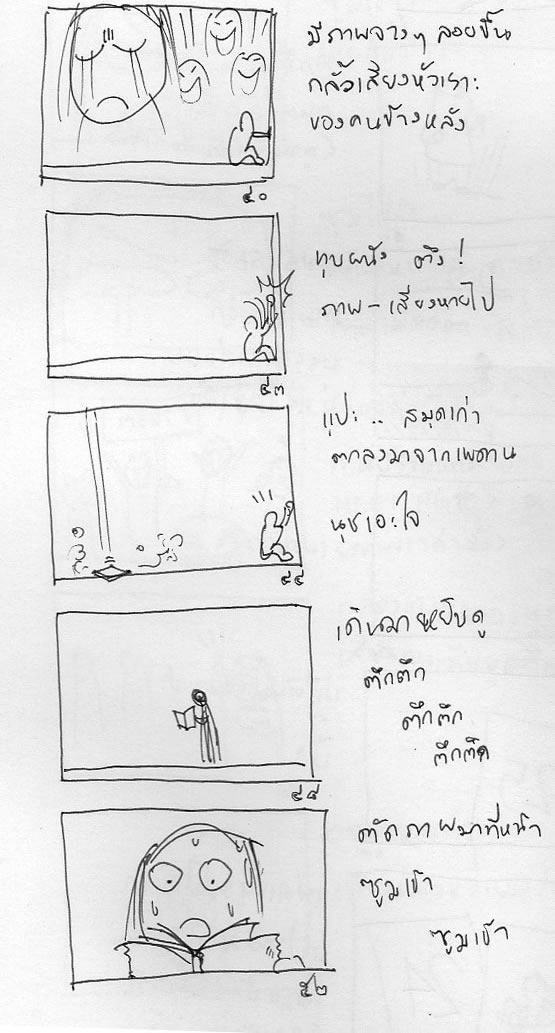 มีภาพจางๆ ลอยขึ้น
กลั้วเสียงหัวเราะ
ของคนข้างหลัง
๔๐
ทุบผนัง ตึง!
ภาพ-เสียงหายไป
๔๓
แปะ.. สมุดเก่า
ตกลงมาจากเพดาน
นุชเอะใจ
๔๔
เดินมาหยิบดู
ตึกตัก
ตึกตัก
ตึกตัก
๔๘
ตัดภาพมาที่หน้า
ซูมเข้า
ซูมเข้า
๕๒